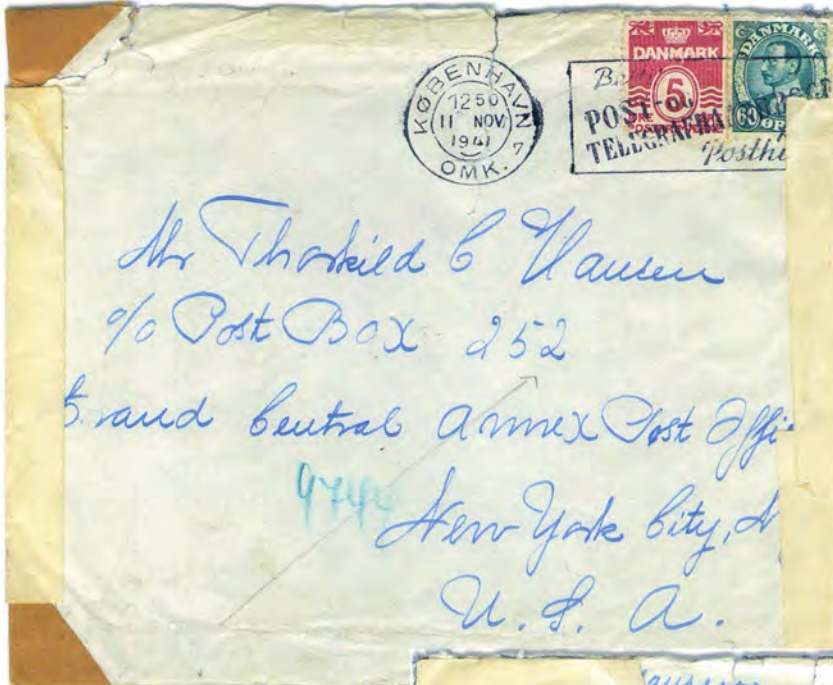 KØBENHAVN
12 50
11 NOV
1941
7
OMK.
DANMARK
5
ØRE
DANMARK
60
ØRE
POST-OG
TELEGRAF
Mr Thorkild C Hansen
c/o Post Box 252
Grand Central Annex Post Offi
9744
New York City, N
U. S. A.